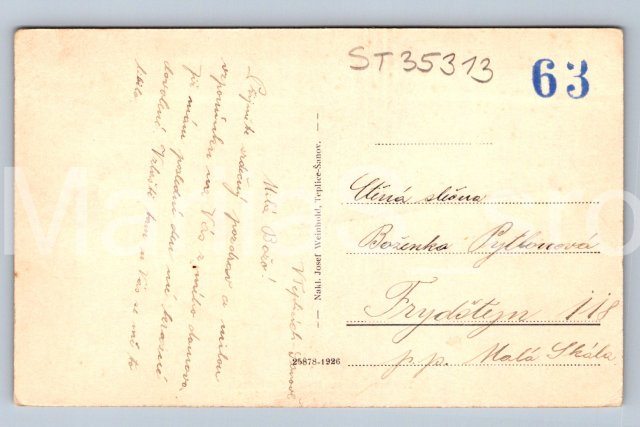 ST35313
63
Milá Božo!
Přijměte srdečný pozdrav a milou
vzpomínku na Vás z mého domova.
již mám poslední dni mé krásné
dovolené. Vzlášte tam u Vás se mě to
líbilo
Nakl. Josef Weinhold, Teplice-Šanov.
25878-1926
Ctěná slečna
Boženka Pytlounová
Frydštejn 118
p.p. Malá Skála